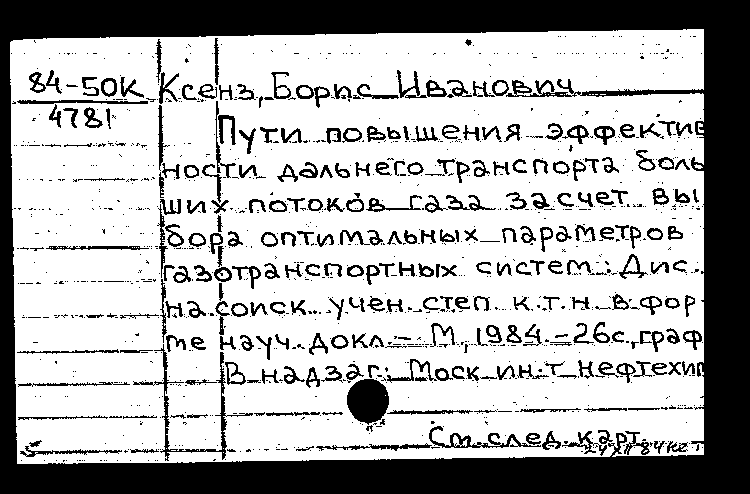 84-50К Ксенз, Борис Иванович
4781
Пути повышения эффектив
ности дальнего транспорта боль
ших потоков газа за счет вы
бора оптимальных параметров
газотранспортных систем: Дис.
на соиск. учен. степ. к.т.н. в фор
ме науч. докл.- М, 1984.-26с, граф
В надзаг: Моск ин-т нефтехим
См. след. карт.
5